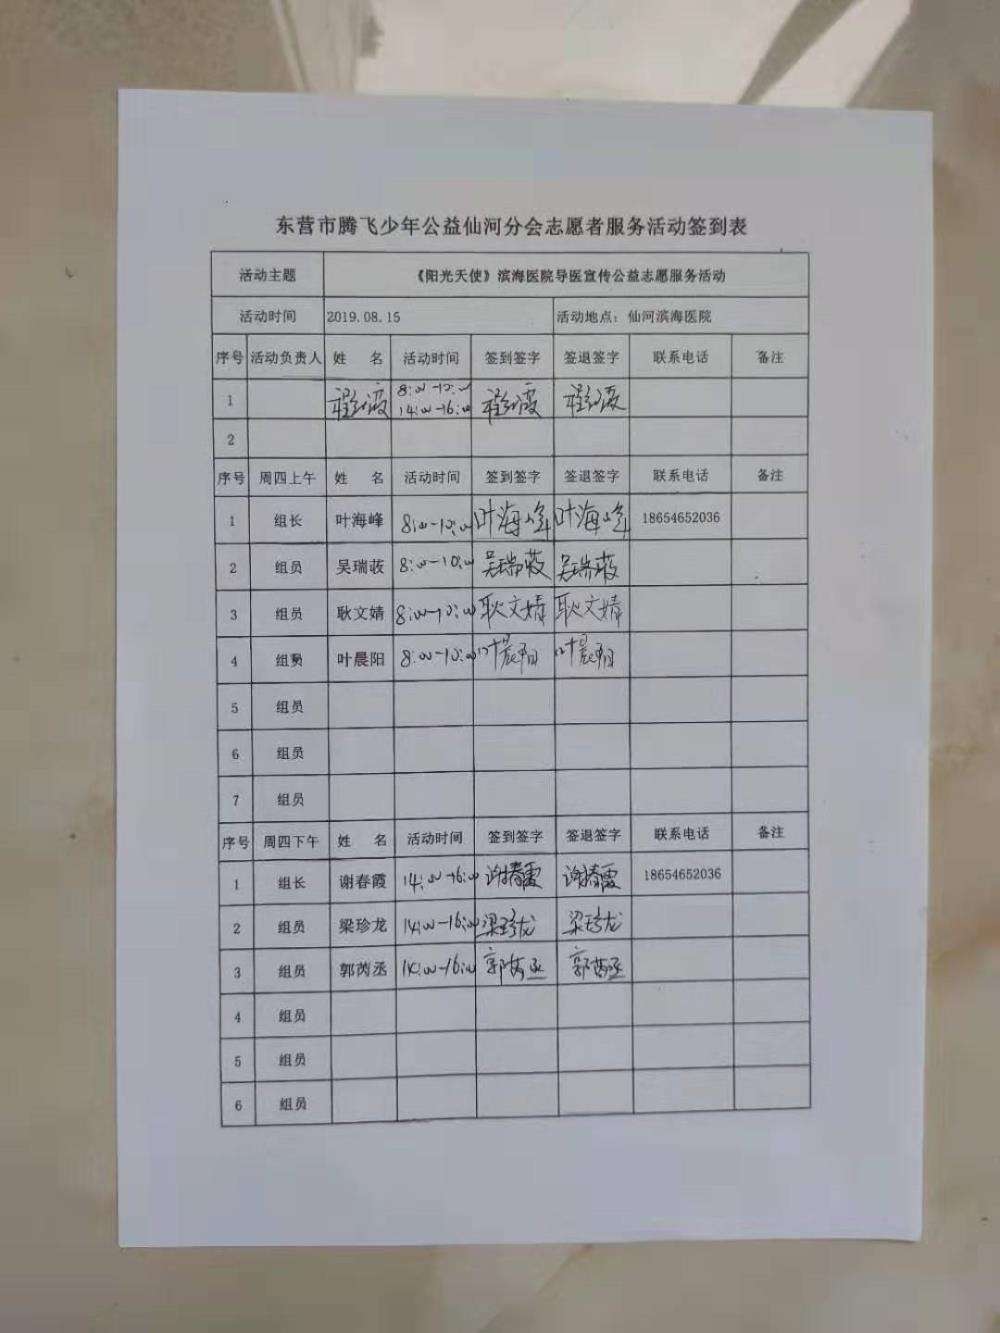 东营市腾飞少年公益仙河分会志愿者服务活动签到表
活动主题 《阳光天使》滨海医院导医宣传公益志愿服务活动
活动时间 2019.08.15 活动地点：仙河滨海医院
序号 活动负责人 姓 名 活动时间 签到签字 签退签字 联系电话 备注
1 8:00-10:00
14:00-16:00
2
序号 周四上午 姓 名 活动时间 签到签字 签退签字 联系电话 备注
1 组长 叶海峰 8:00-10:00 叶海峰 叶海峰 18654652036
2 组员 吴瑞莜 8:00-10:00 吴瑞莜 吴瑞莜
3 组员 耿文婧 8:00-10:00 耿文婧 耿文婧
4 组员 叶晨阳 8:00-10:00 叶晨阳 叶晨阳
5 组员
6 组员
7 组员
序号 周四下午 姓 名 活动时间 签到签字 签退签字 联系电话 备注
1 组长 谢春霞 14:00-16:00 谢春霞 谢春霞 18654652036
2 组员 梁珍龙 14:00-16:00 梁珍龙 梁珍龙
3 组员 郭芮丞 14:00-16:00 郭芮丞 郭芮丞
4 组员
5 组员
6 组员